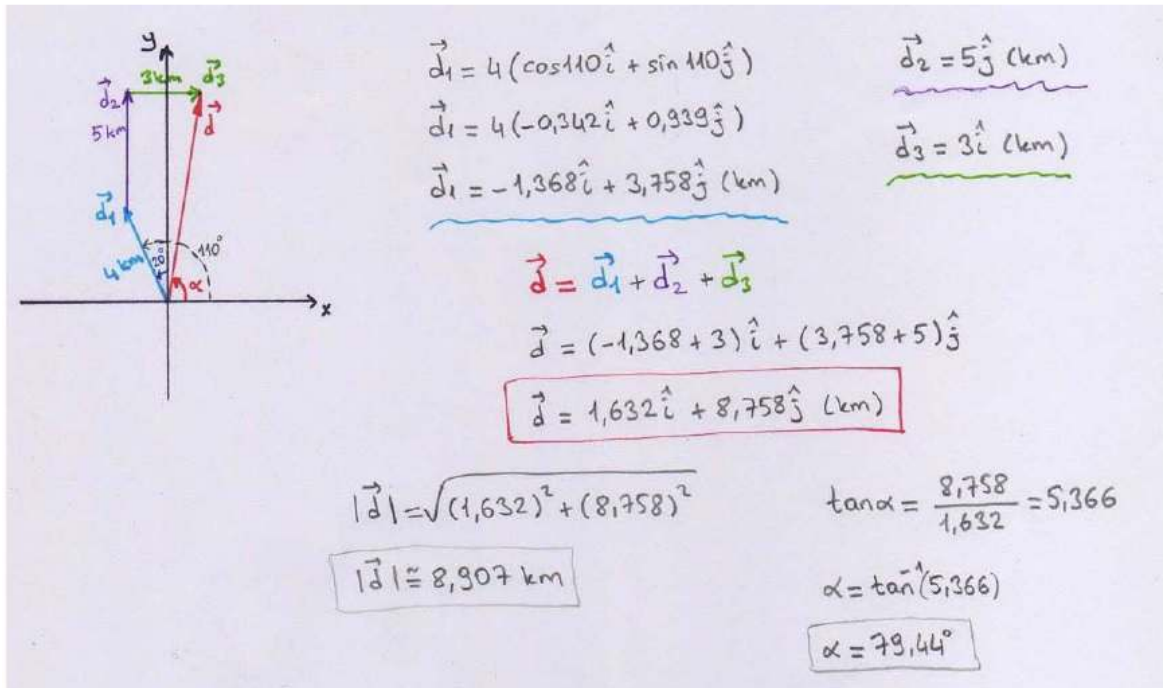 y
3km
d⃗3
d⃗2
d⃗
5km
d⃗1
4km
20°
110°
α
x
d⃗1 = 4(cos110î + sin 110ĵ)
d⃗1 = 4(-0,342î + 0,939ĵ)
d⃗1 = -1,368î + 3,758ĵ (km)
d⃗2 = 5ĵ (km)
d⃗3 = 3î (km)
d⃗ = d⃗1 + d⃗2 + d⃗3
d⃗ = (-1,368 + 3)î + (3,758 + 5)ĵ
d⃗ = 1,632î + 8,758ĵ (km)
|d⃗| = √(1,632)² + (8,758)²
|d⃗| ≅ 8,907 km
tanα = 8,758/1,632 = 5,366
α = tan⁻¹(5,366)
α = 79,44°